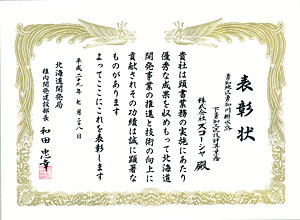 表彰状
勇知地区勇知川排水路
下勇知工区設計等業務
株式会社 ズコーシャ 殿
貴社は頭書業務の実施にあたり
優秀な成果を収めもって北海道
開発事業の推進と技術の向上に
貢献されその功績は誠に顕著な
ものがあります
よってここにこれを表彰します
平成二十八年 七月二十八日
北海道開発局
稚内開発建設部長
和田忠幸